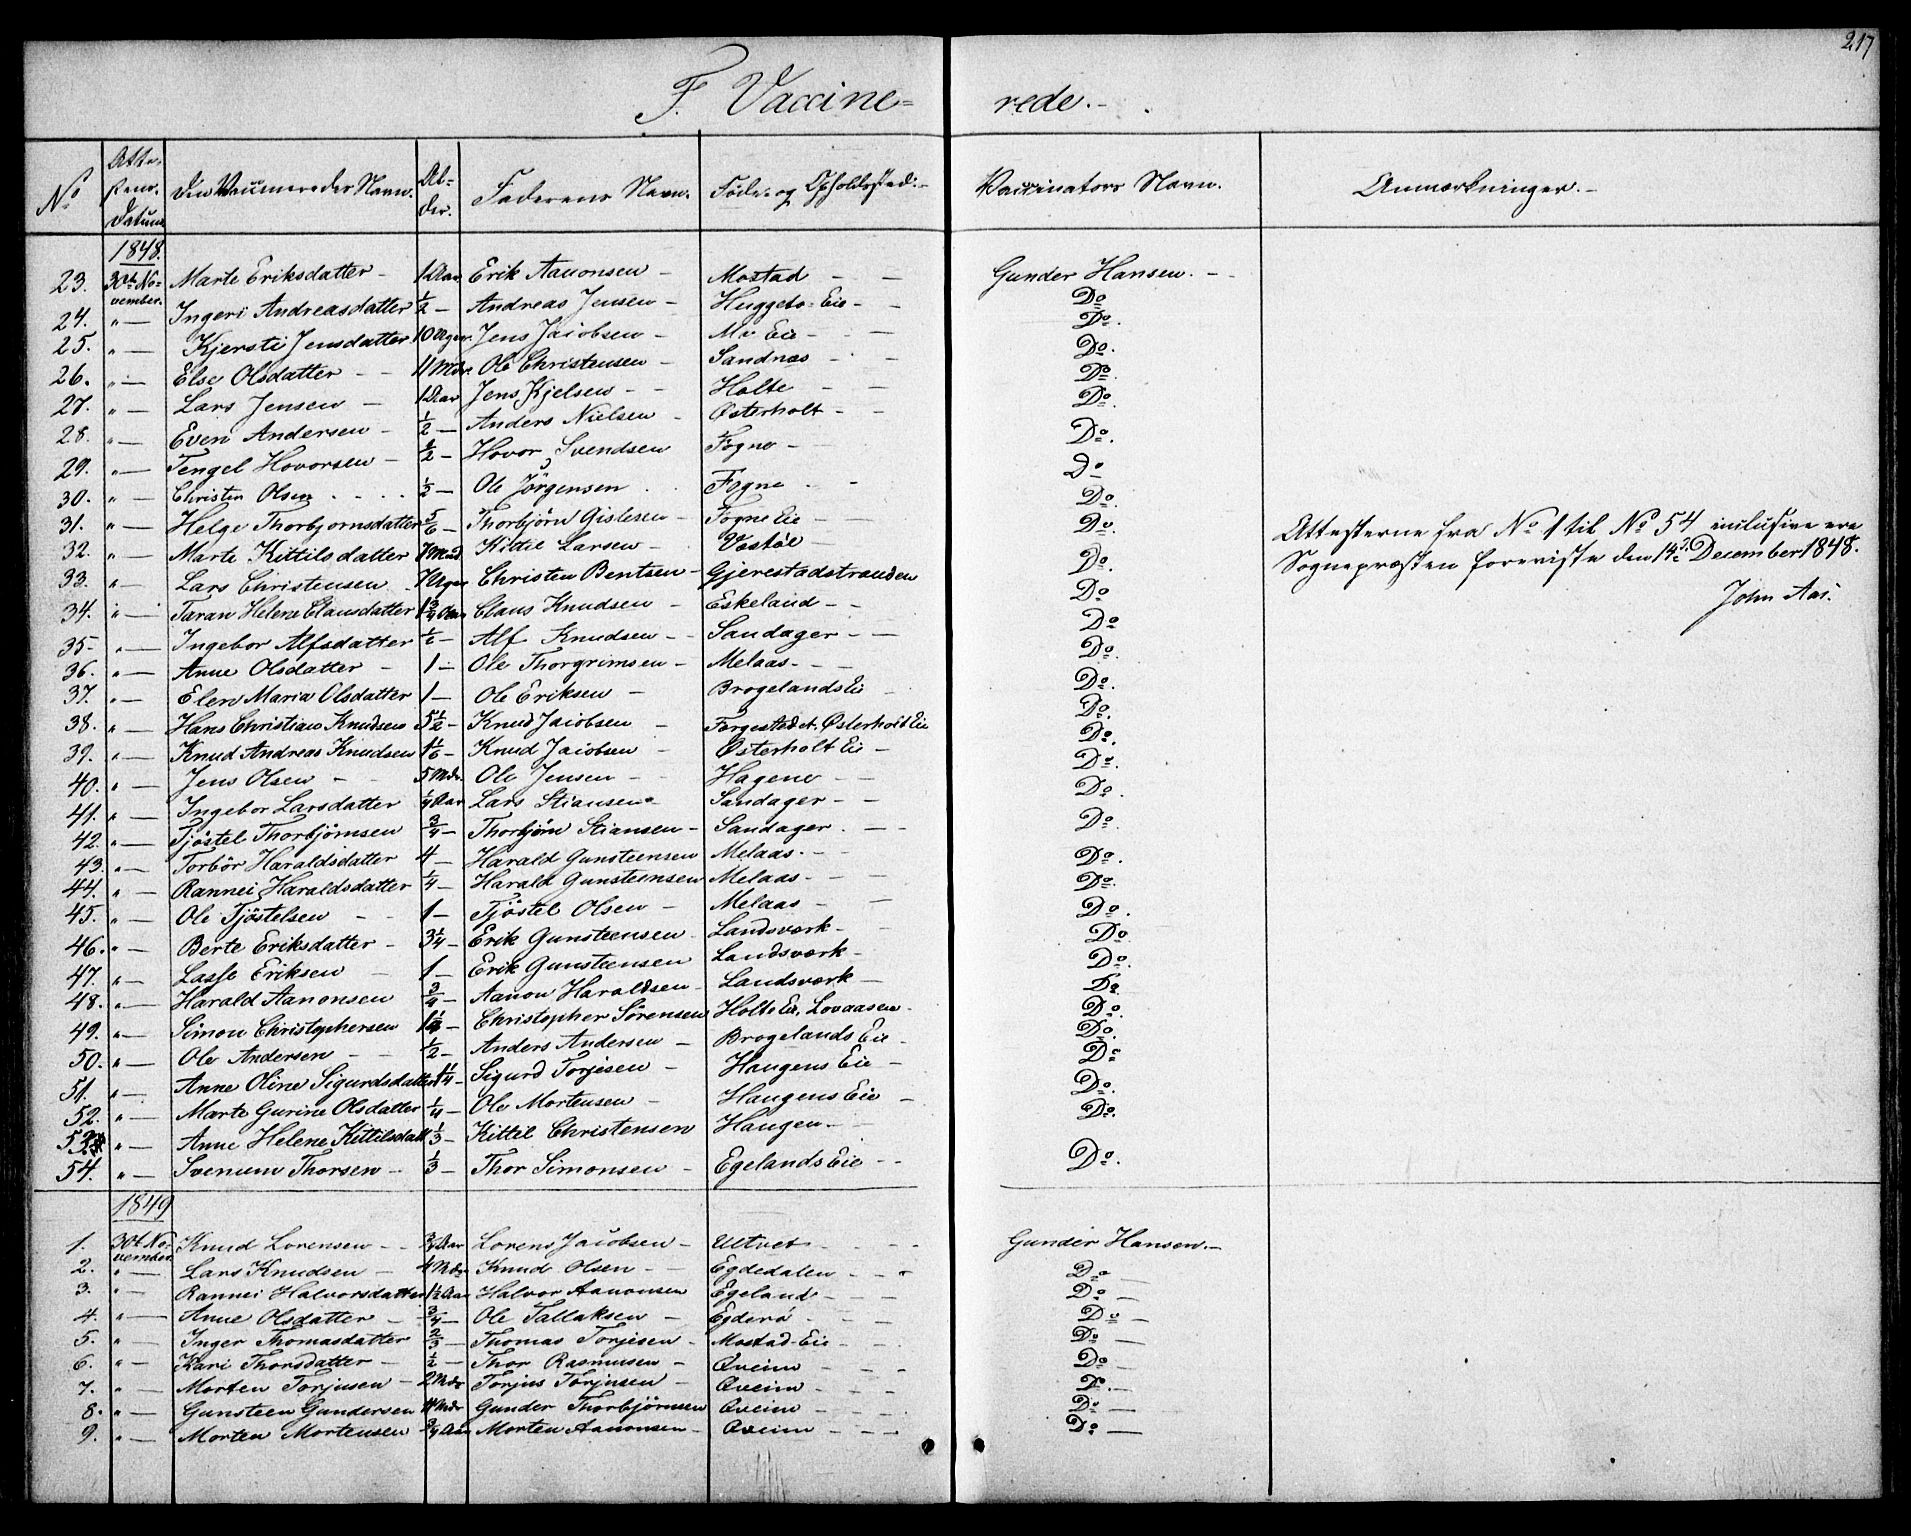 217
F. Vaccine= rede.-
No Attestens Datum Den Vaccineredes Navn. Alder. Faderens Navn. Føde- og Opholdssted:- Vaccinators Navn. Anmærkninger.-
1848.
23. 30te November. Marte Eriksdatter - 1 Aar Erik Aanonsen - Mostad - - Gunder Hansen. - -
24. " — Ingeri Andreasdatter 1/2 - Andreas Jensen - Huggeto-Eie - - Do
25. " — Kjersti Jensdatter 10 Uger Jens Jacobsen - Mo Eie - - Do.
26. " — Else Olsdatter - - 11 Mdr Ole Christensen - Sandnæs - - Do.
27. " — Lars Jensen - 1 Aar Jens Kjelsen - - Holte - - Do.
28. " — Even Andersen - 1/2 — Anders Nielsen - Østerholt - - Do.
29. " — Tengel Hovorsen - 1/2 - Hovor Svendsen Fogne - Do.
30. " — Christen Olsen . . . . 1/2 — Ole Jörgensen . . Fogne - - Do
31. " — Helge Thorbjornsdatter 5/6 - Thorbjörn Gislesen - Fogne Eie - Do.
32. " — Marte Kittilsdatter 7 Mnd. Kittil Larsen - Vestöl - Do.
33. " — Lars Christensen - 7 Uger Christen Bentsen - Gjerestadstranden Do.
34. " — Taran Helene Clausdatter 1 3/4 Aar Claus Knudsen - Eskeland - - Do.
35. " — Ingebor Alfsdatter 1/2 - Alf Knudsen - - Sandager - - Do
36. " — Anne Olsdatter - 1 - Ole Thorgrimsen - Melaas - - - Do.
37. " — Elen Maria Olsdatter 1 - Ole Eriksen - Brogelands Eie - Do.
38. " — Hans Christian Knudsen 5 1/2 - Knud Jacobsen - Østerholt Eie Do.
39. " — Knud Andreas Knudsen 1 1/6 - Knud Jacobsen - Østerholt Eie - Do.
40. " — Jens Olsen - - 5 Mdr. Ole Jensen - - Hagene - - Do.
41. " — Ingebor Larsdatter 1/4 Aar Lars Stiansen - Sandager - - Do.
42. " — Tjöstel Thorbjörnsen 3/4 - Thorbjörn Stiansen - Sandager. - - Do.
43. " — Torbör Haraldsdatter 4 - Harald Gunsteensen Melaas - - Do.
44. " — Rannei Haraldsdatter 1/4 - Harald Gunsteensen Melaas - - Do.
45. " — Ole Tjöstelsen - - 1 - Tjöstel Olsen - Melaas - - Do.
46. " — Berte Eriksdatter - 3 1/4 - Erik Gunsteensen - Landsværk - - Do.
47. " — Lasse Eriksen - 1 - Erik Gunsteensen Landsværk - Do.
48. " — Harald Aanonsen 3/4 - Aanon Haraldsen - Landsværk - Do
49. " — Simon Christophersen 1 1/2 - Christopher Sörensen Holte Eie, Lovaasen - Do.
50. " — Ole Andersen - - 1/2 - Anders Andersen - Brogelands Eie - Do.
51. " — Anne Oline Sigurdsdatter 1 1/4 - Sigurd Torjesen - Haugens Eie - Do.
52. " — Marte Gurine Olsdatter 1/4 - Ole Mortensen - Haugens Eie - Do.
53. " — Anne Helene Kittilsdatt 1/3 - Kittil Christensen Haugen - - Do.
54. " — Svenum Thorsen - 1/3 - Thor Simonsen - Egelands Eie - - Do.
Attesterne fra No 1 til No 54 inclusive ere
Sognepræsten foreviste den 14de December 1848.
John Aas.
1849
1. 30te November. Knud Lorensen - - 3/4 Aar Lorens Jacobsen - Ultvet - - - - Gunder Hansen.-
2. " — Lars Knudsen - 4 Mdr Knud Olsen - - Egdedalen - - - Do —
3. " — Rannei Halvorsdatter 1 1/2 Aar Halvor Aanonsen Egeland - - - Do —
4. " — Anne Olsdatter - 3/4 - Ole Tallaksen - Egderö - - - Do —
5. " — Inger Thomasdatter 2/3 - Thomas Torjesen - Mostad-Eie - - Do —
6. " — Kari Thorsdatter - 1/2 - Thor Rasmusen - Qveim - - - Do —
7. " — Morten Torjusen - 2 Mdr Torjus Torjusen - Qveim - - - Do —
8. " — Gunsteen Gundersen 11 Mdr Gunder Thorbjörnsen Qveim - - - Do —
9. " — Morten Mortensen 3/4 Aar Morten Aanonsen - Qveim - - - Do —